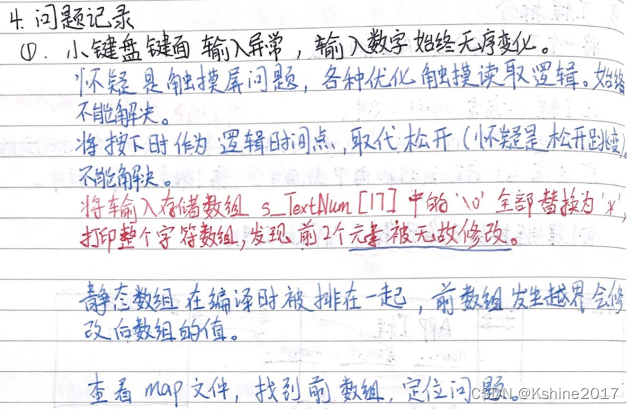 4. 问题记录
①. 小键盘键面 输入异常，输入数字始终无序变化。
怀疑是触摸屏问题，各种优化触摸读取逻辑。始终
不能解决。
将按下时作为逻辑时间点，取代松开（怀疑是松开跳变），
不能解决。
将输入存储数组 s_TextNum[17] 中的'\0'全部替换为'x'，
打印整个字符数组，发现前2个元素被无故修改。
静态数组在编译时被排在一起，前数组发生越界会修
改后数组的值。
查看map文件，找到前数组，定位问题。
CSDN @Kshine2017